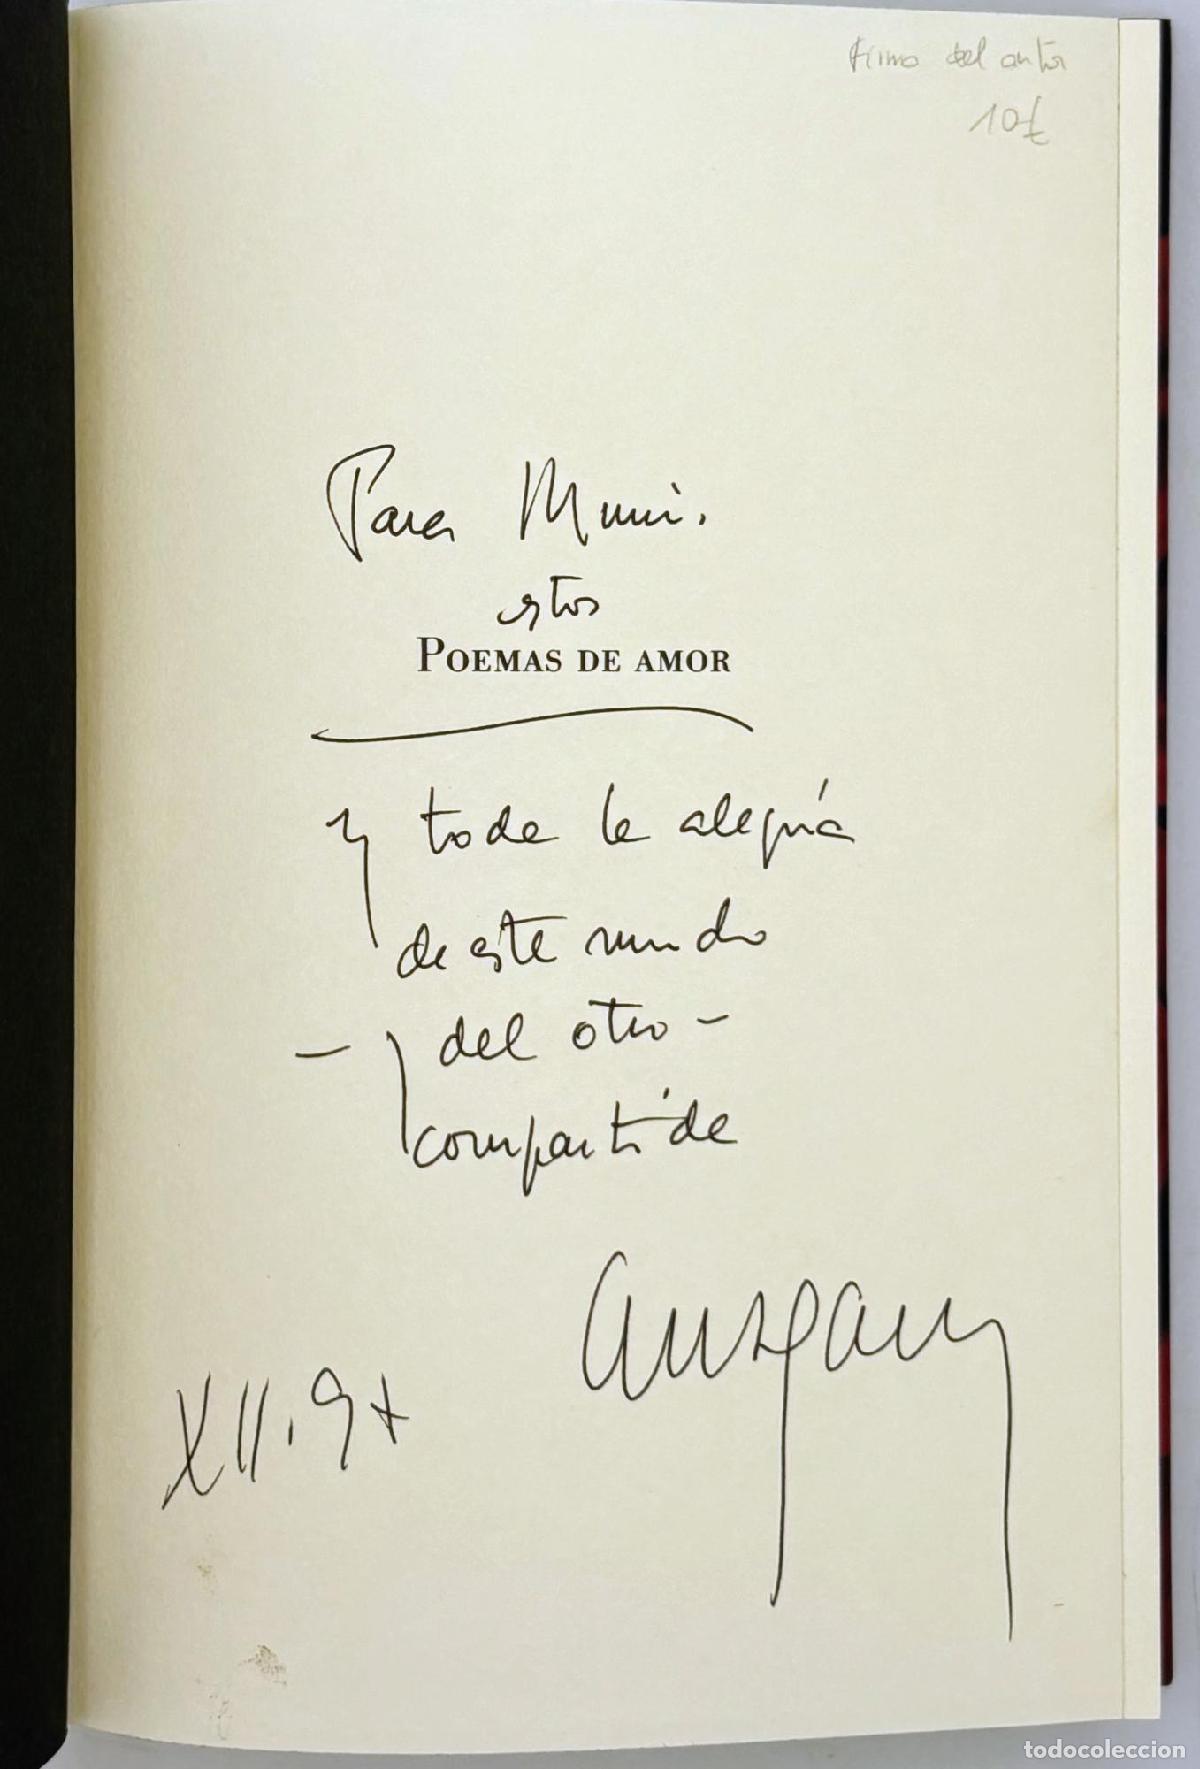 Firma del autor
10€
Para Mimi.
estos
POEMAS DE AMOR
y toda la alegría
de este mundo
- y del otro -
compartida
XII.97
todocoleccion